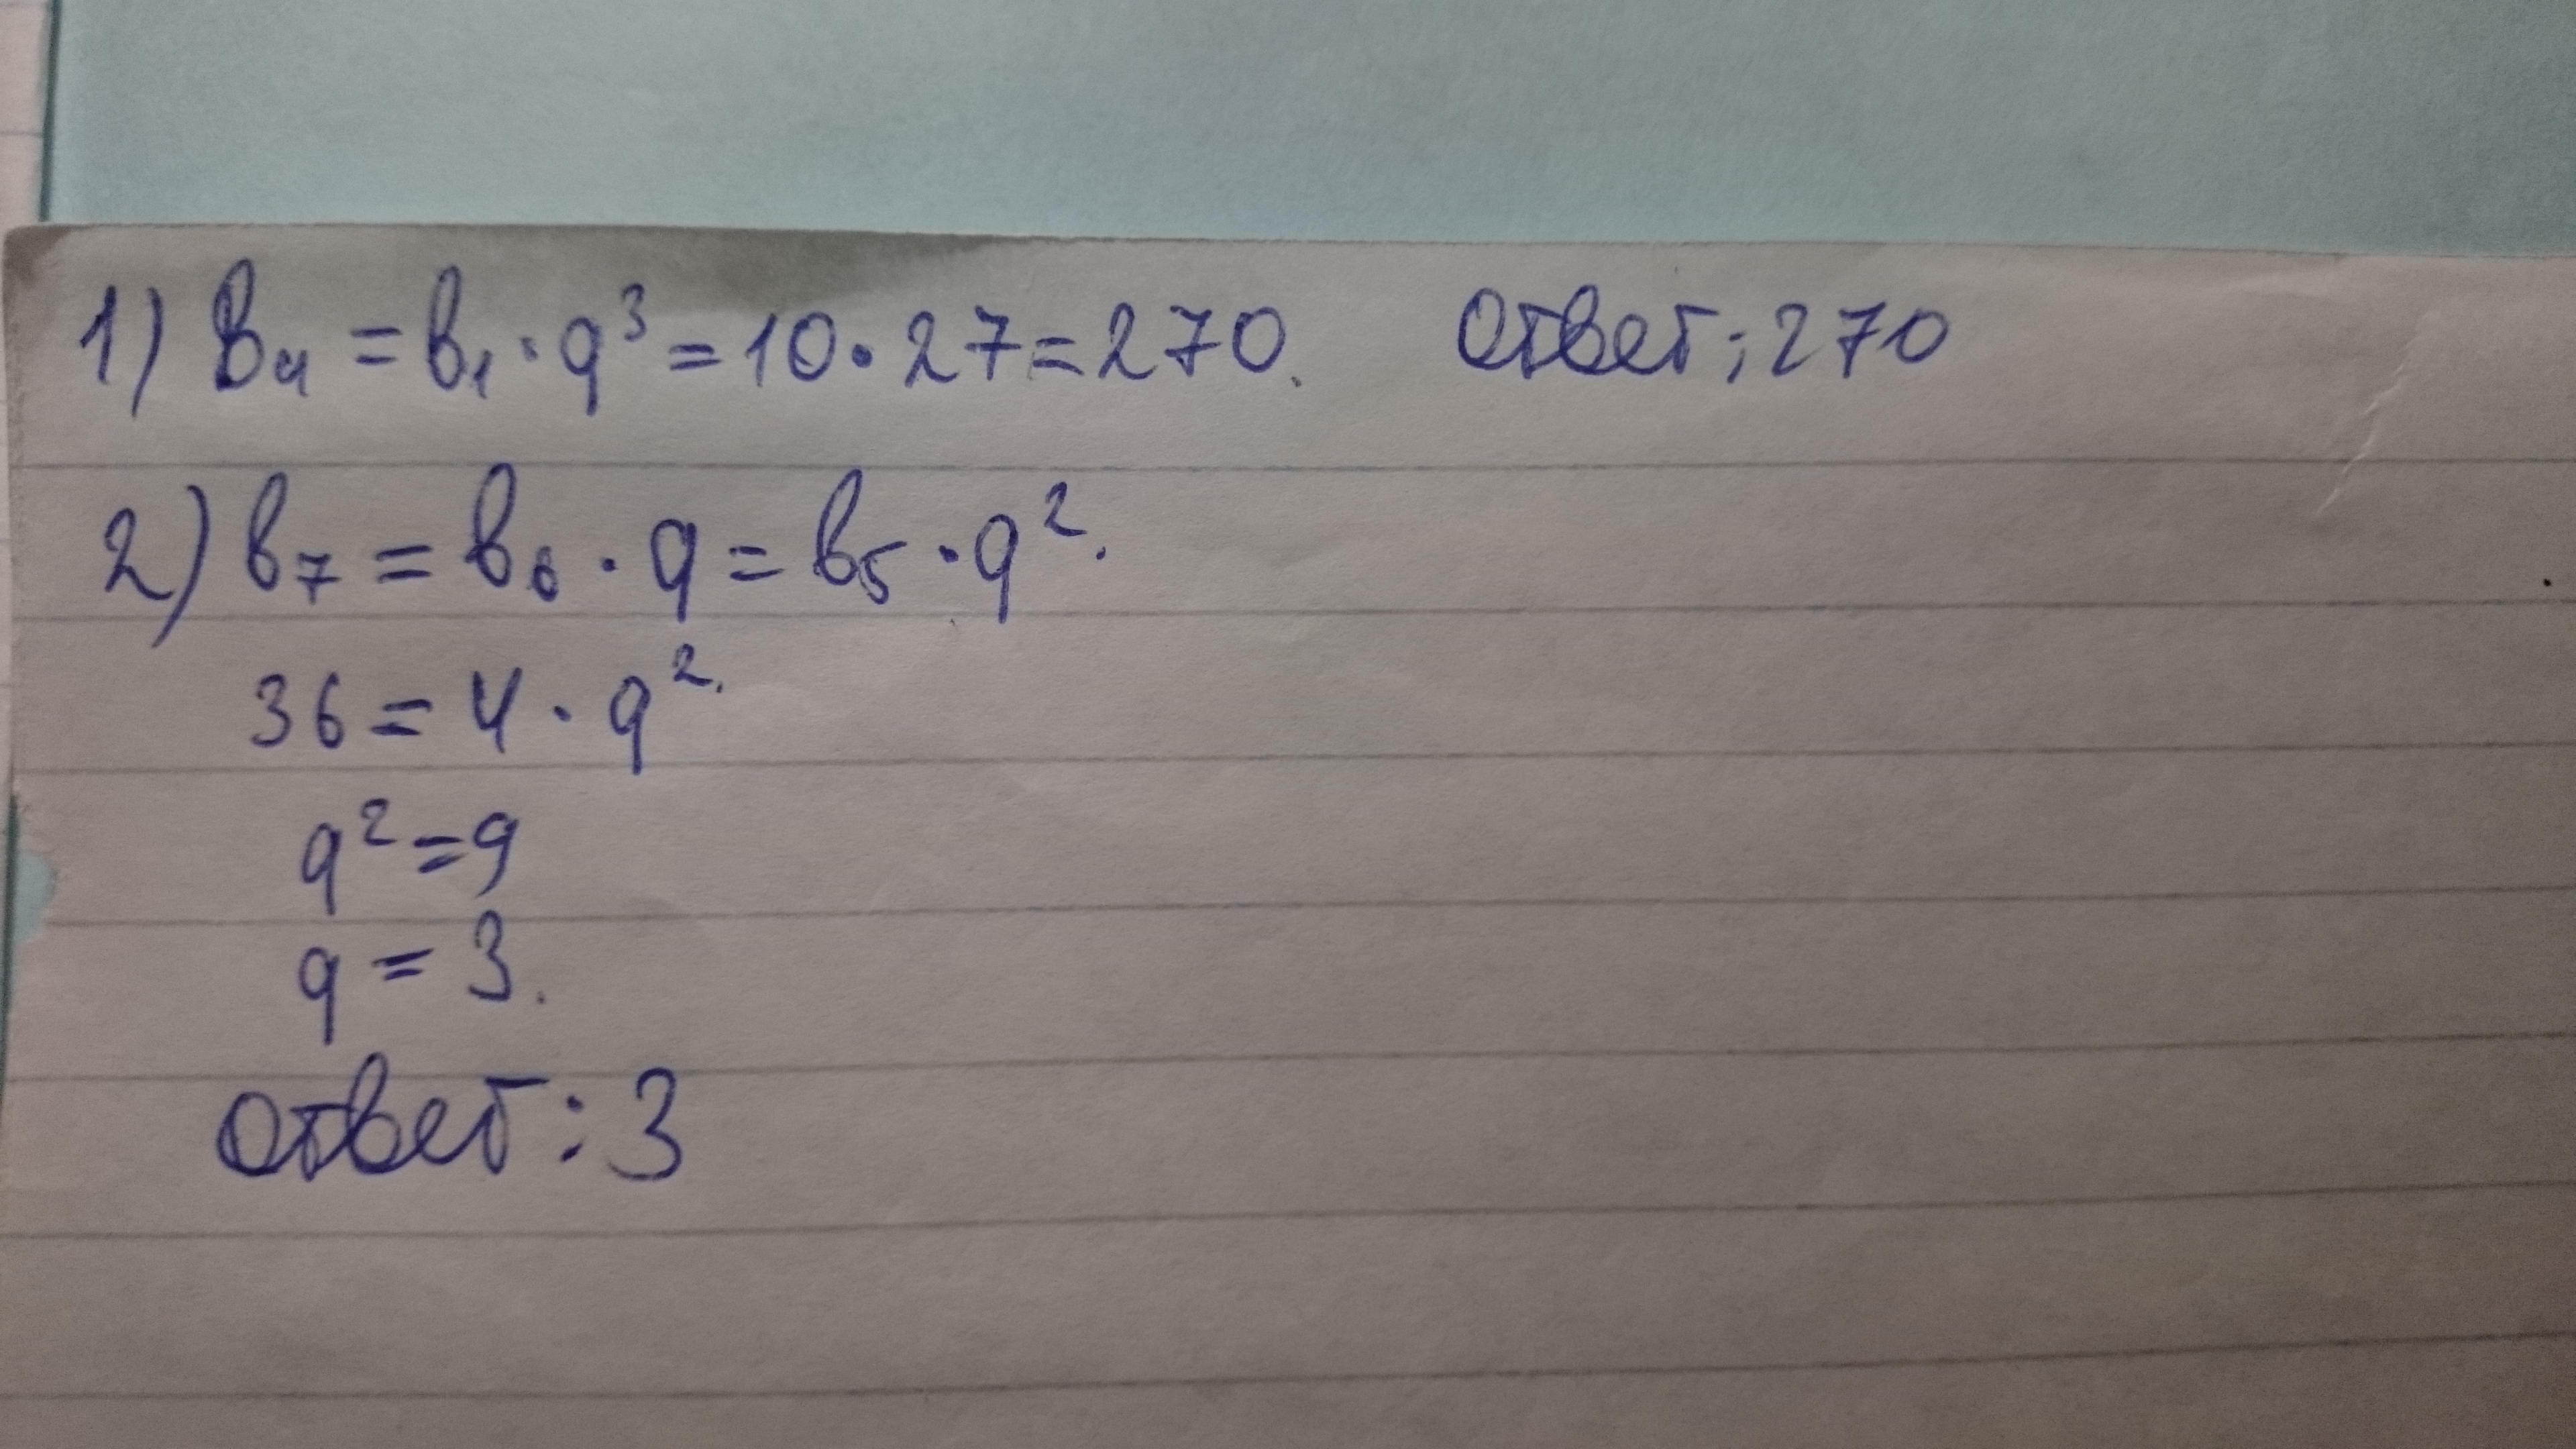 1) b₄ = b₁ · q³ = 10 · 27 = 270. Ответ: 270
2) b₇ = b₆ · q = b₅ · q².
36 = 4 · q².
q² = 9
q = 3.
Ответ: 3